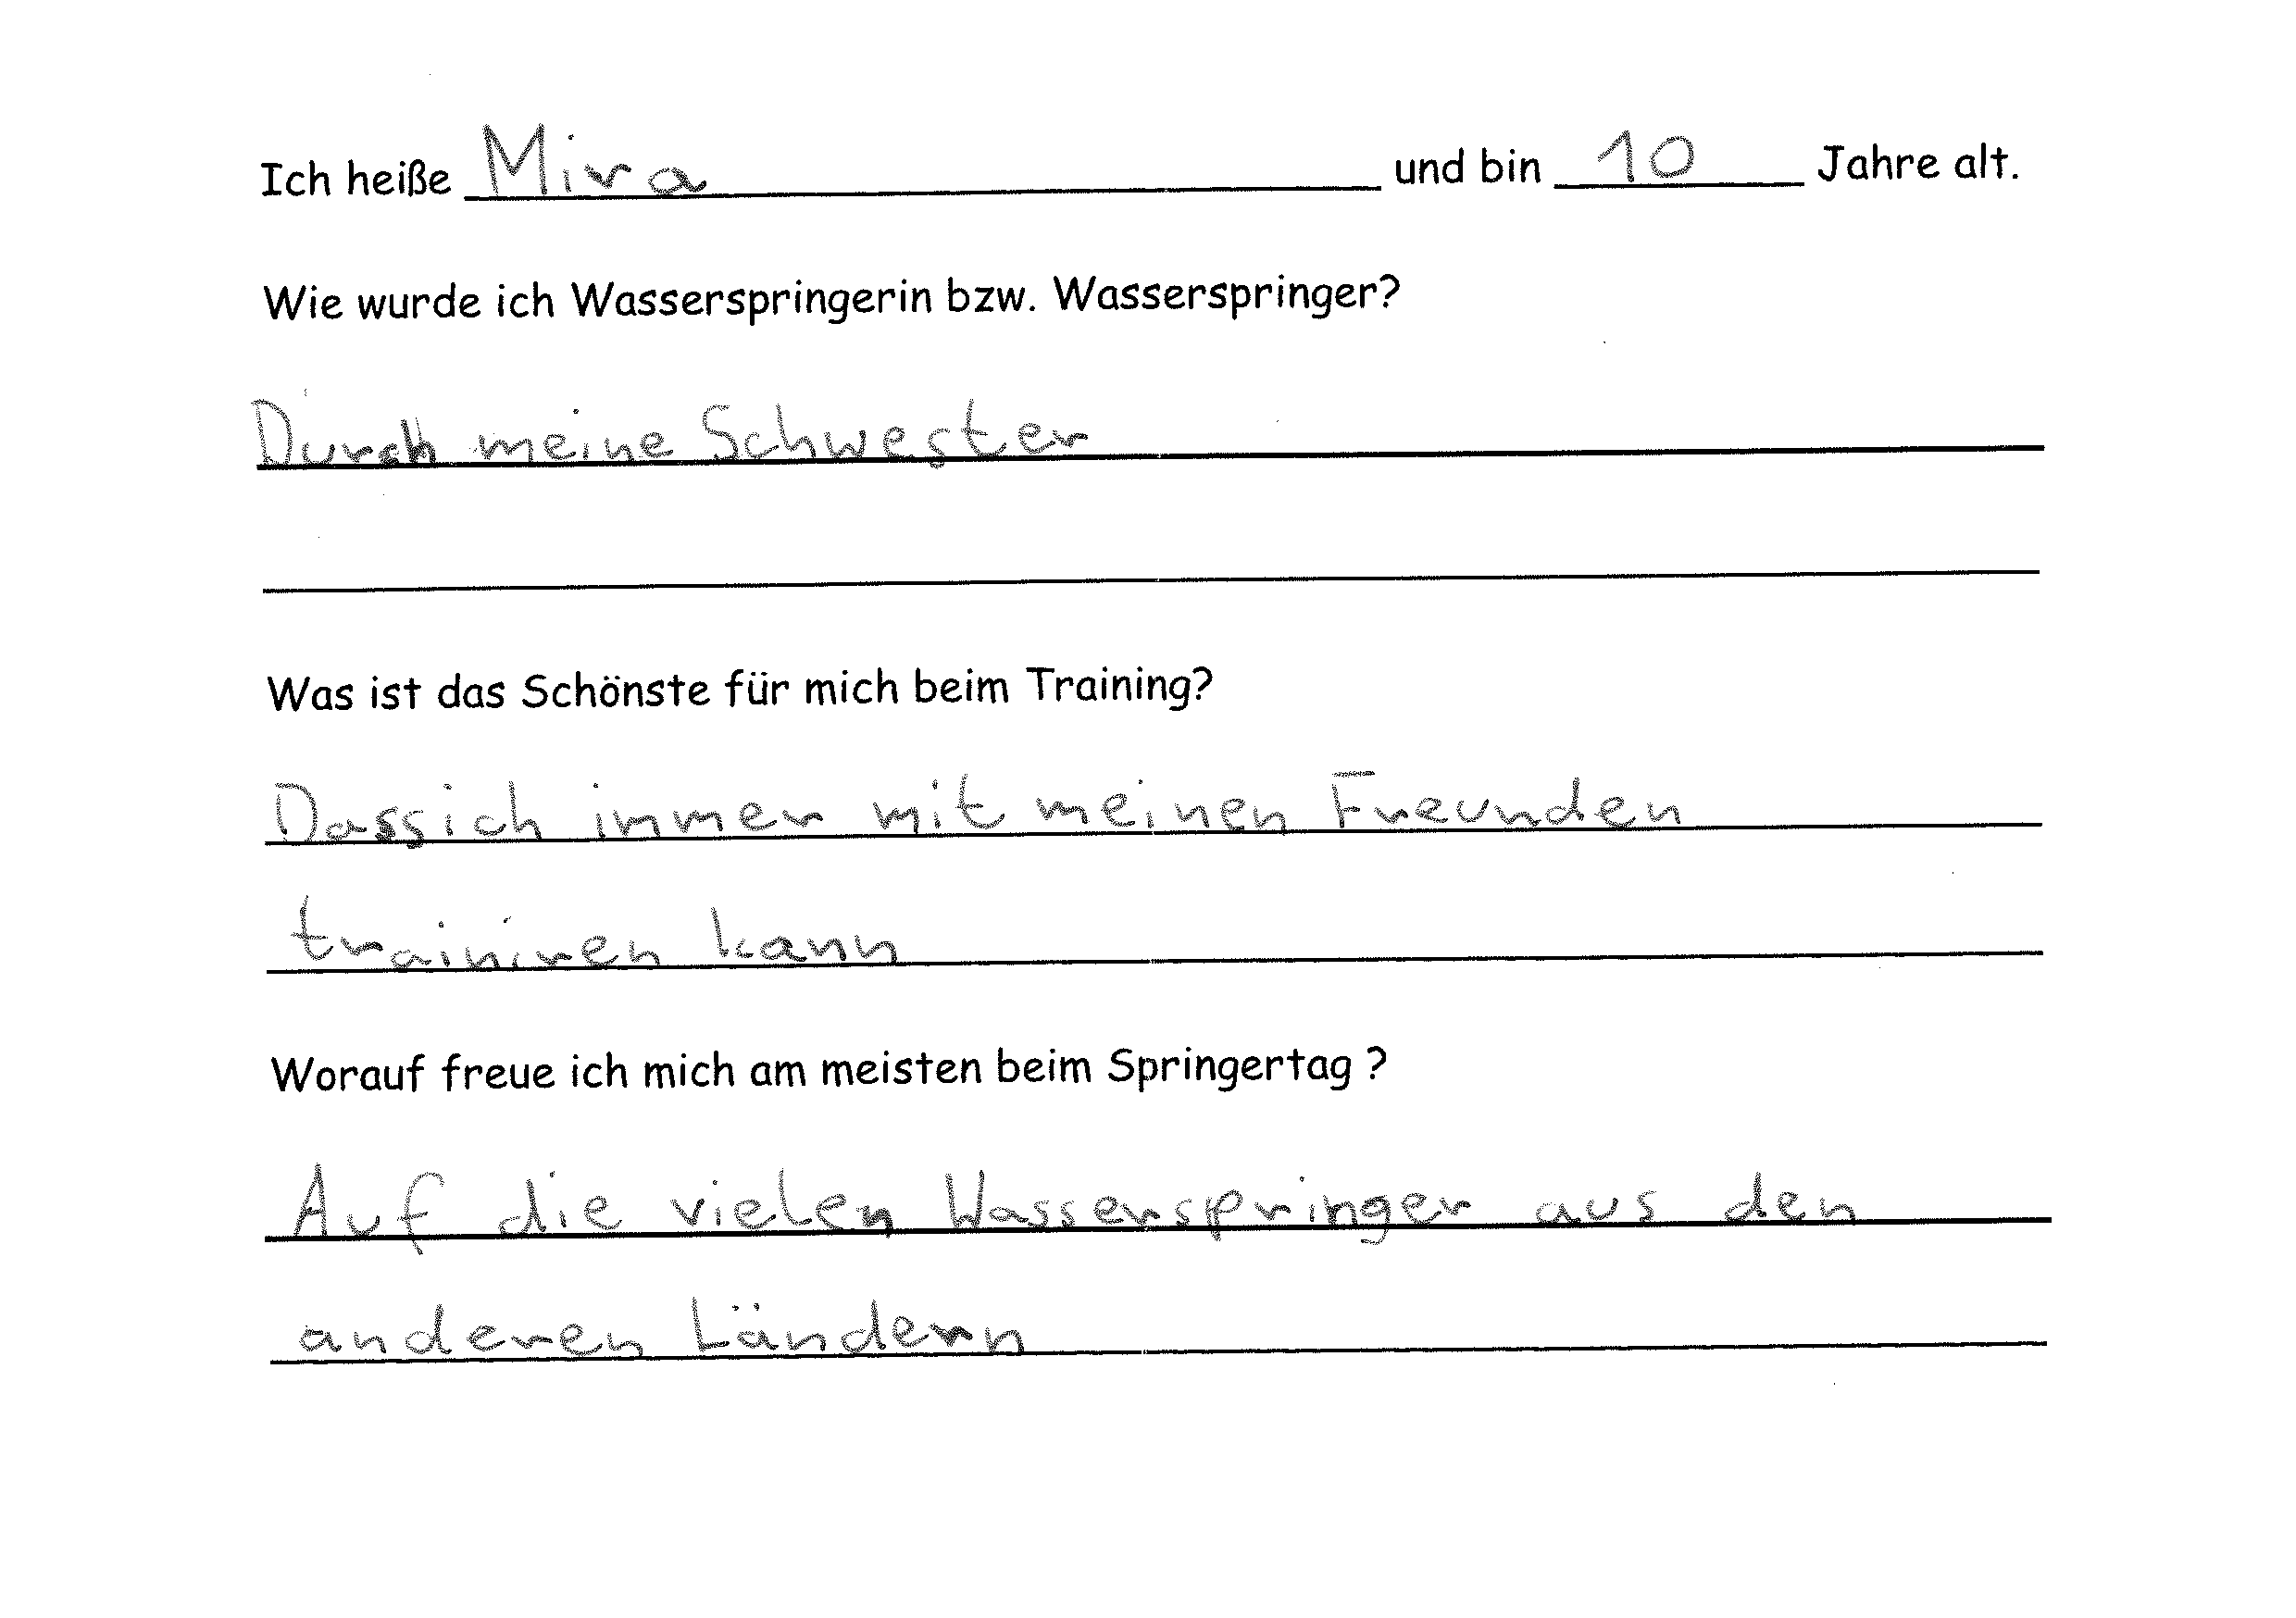 Ich heiße Mira und bin 10 Jahre alt.
Wie wurde ich Wasserspringerin bzw. Wasserspringer?
Durch meine Schwester
Was ist das Schönste für mich beim Training?
Dass ich immer mit meinen Freunden
trainiren kann
Worauf freue ich mich am meisten beim Springertag ?
Auf die vielen Wasserspringer aus den
anderen Ländern